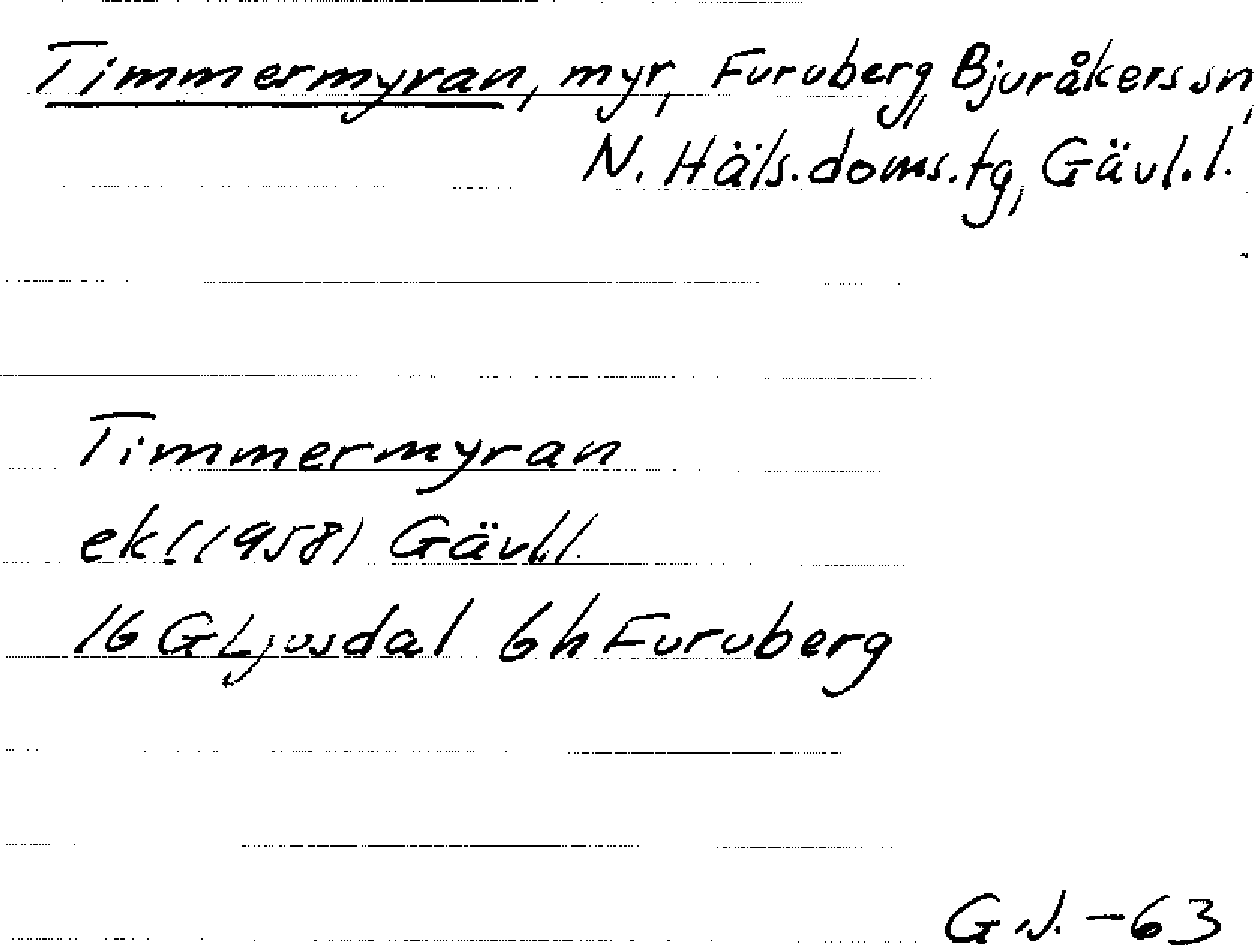 Timmermyran, myr, Furuberg, Bjuråkers sn,
N. Häls. doms. tg, Gävl. l.
Timmermyran
ek! (1958) Gävl.l.
16 G Ljusdal 6h Furuberg
G.J. -63